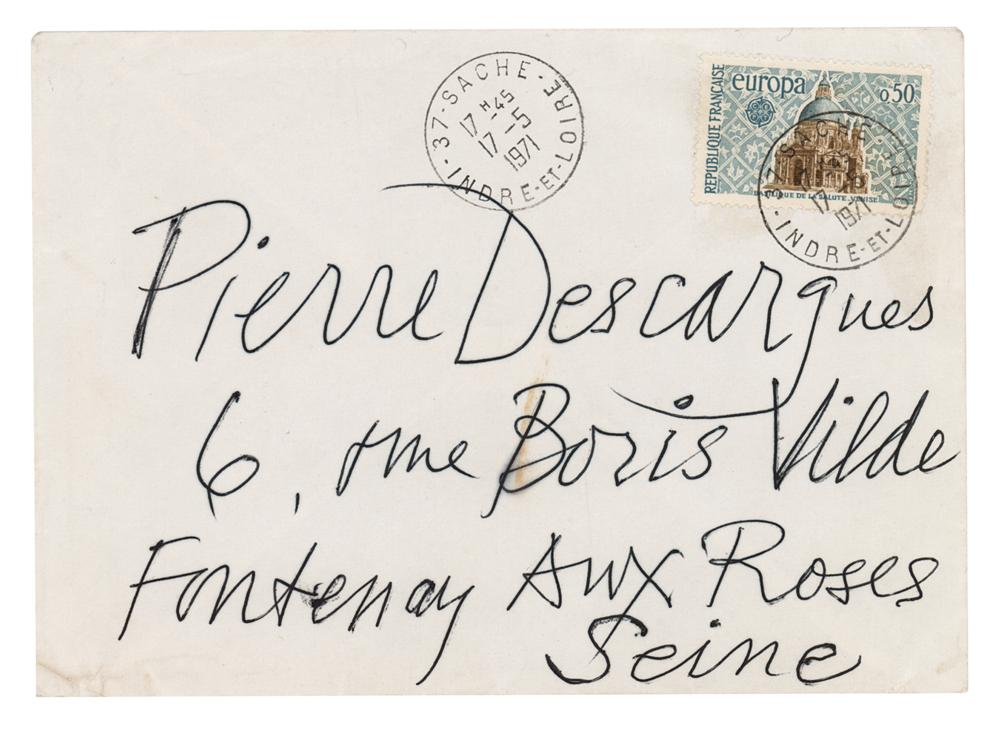 37-SACHE-
17 H 45
17-5
1971
INDRE-ET-LOIRE
REPUBLIQUE FRANÇAISE
europa
0,50
BASILIQUE DE LA SALUTE . VENISE
37-SACHE
17-5
1971
INDRE-ET-LOIRE
Pierre Descargues
6, rue Boris Vildé
Fontenay Aux Roses
Seine